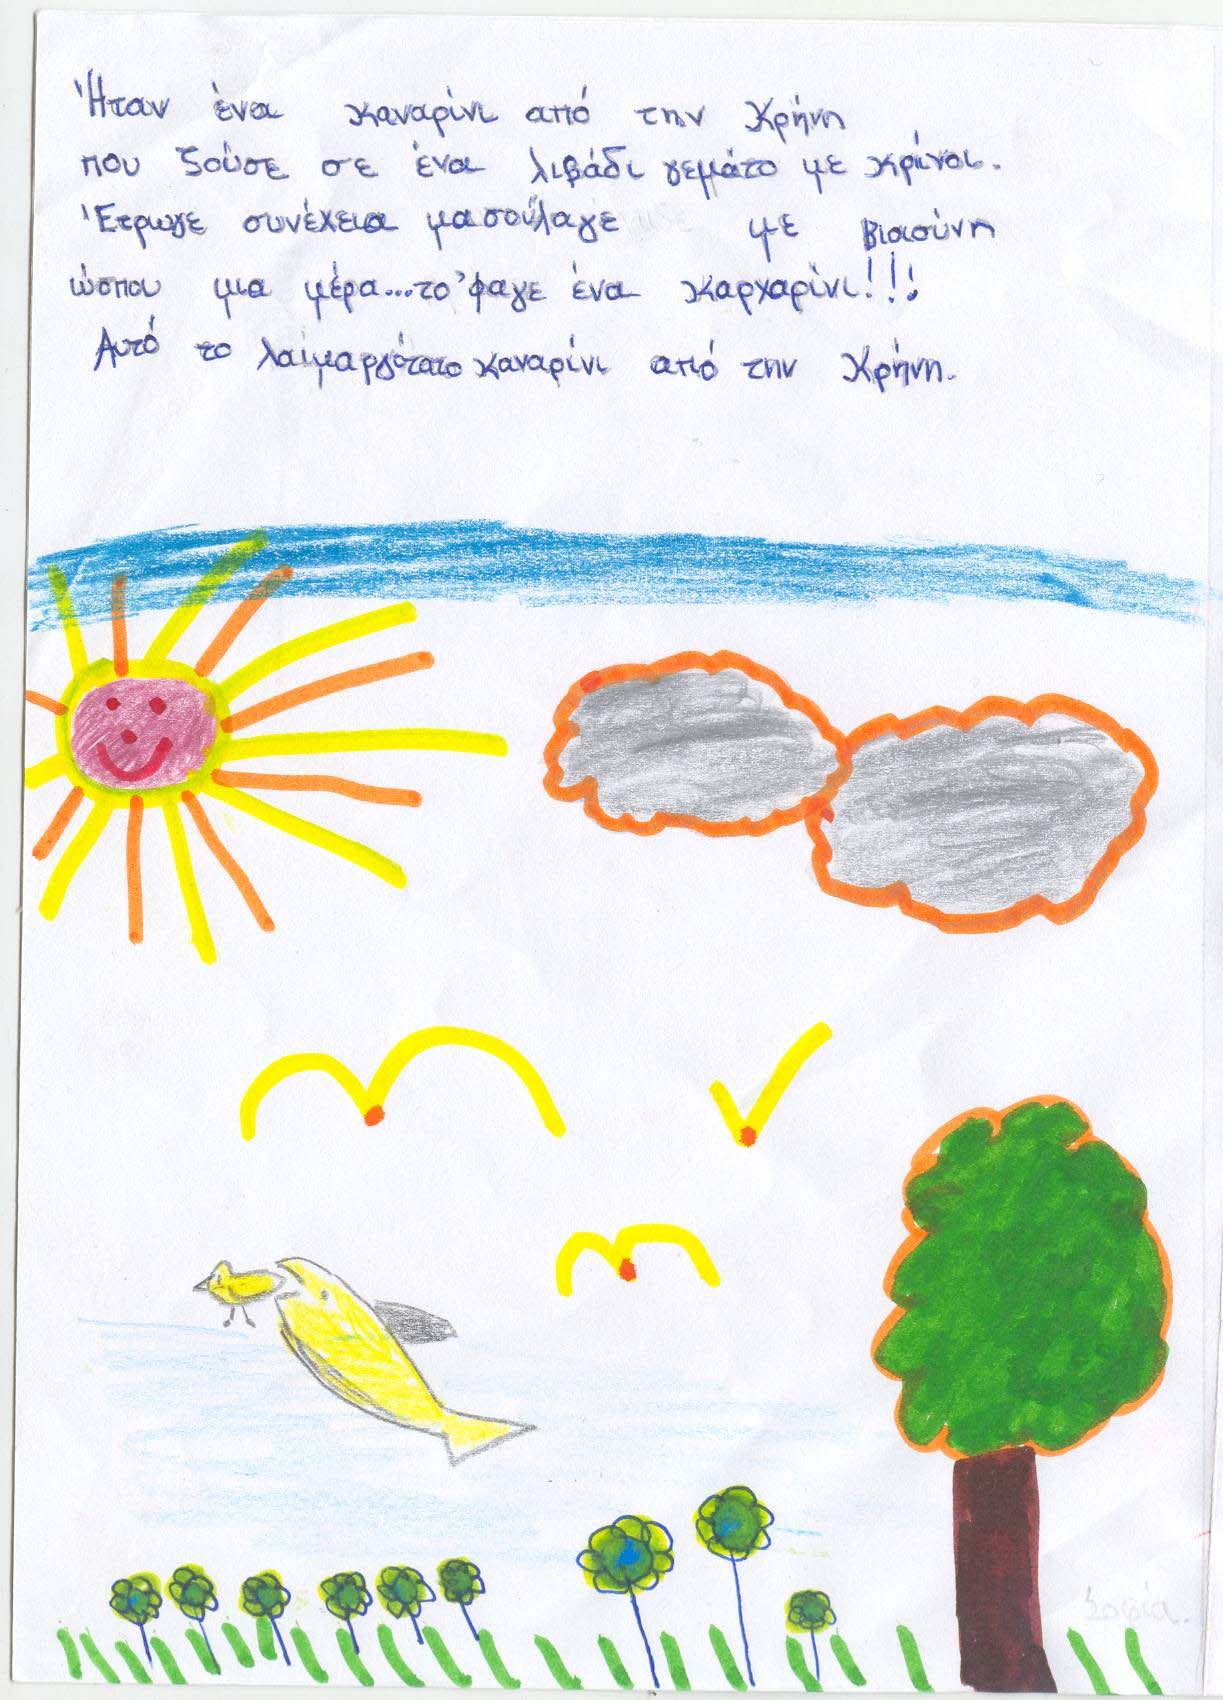 Ήταν ένα καναρίνι από την Κρήνη
που ζούσε σε ένα λιβάδι γεμάτο με κρίνοι.
Έτρωγε συνέχεια μασούλαγε με βιασύνη
ώσπου μια μέρα...το 'φαγε ένα καρχαρίνι!!!
Αυτό το λαιμαργότατο καναρίνι από την Κρήνη.
Σοφία.